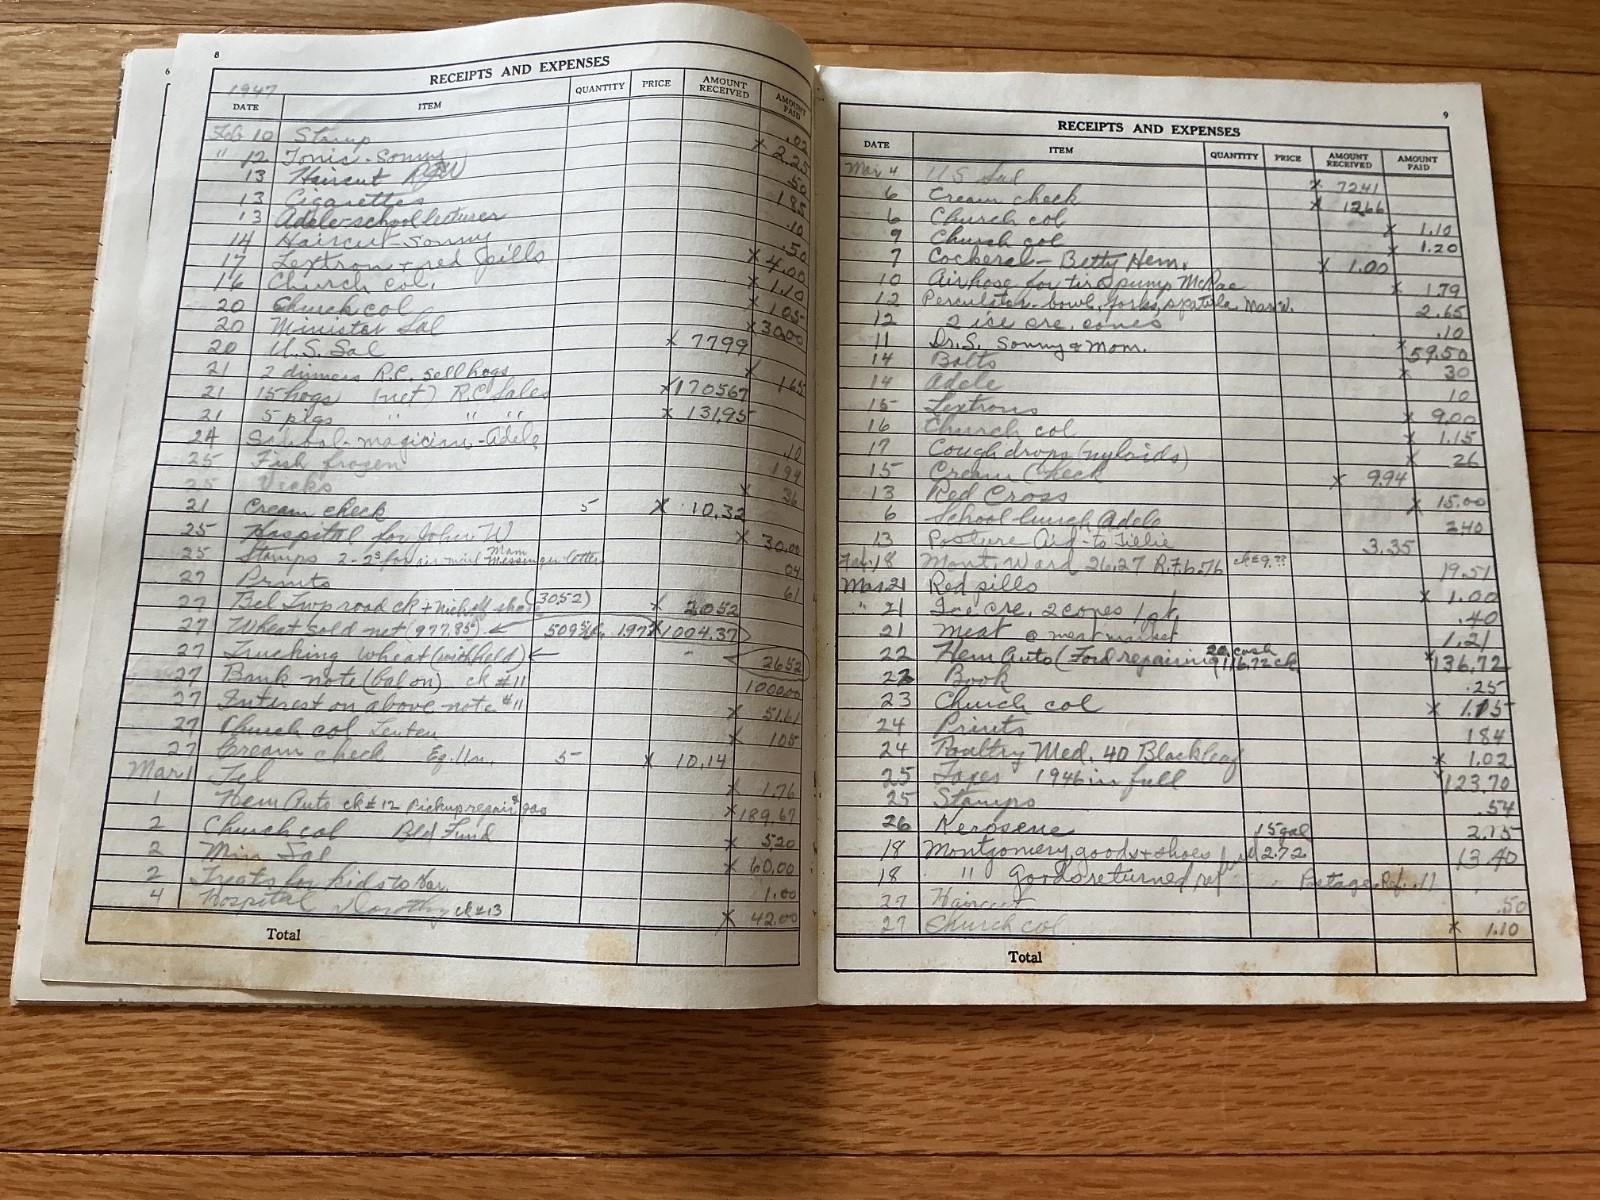 6
8
RECEIPTS AND EXPENSES
1947
DATE ITEM QUANTITY PRICE AMOUNT RECEIVED AMOUNT PAID
Feb 10 Stamp .02
" 12 Tonic - Sonny x 2.25
13 Haircut .50
13 Cigarettes 1.85
13 Adele-school lecturer .10
14 Haircut-Sonny .50
17 Lextron + red pills x 4.00
16 Church col. x 1.10
20 Church col x 1.05
20 Minister Sal x 30.00
20 U.S. Sal x 77 99
21 2 dinners R.C. sell hogs x 1.65
21 15 hogs (net) R.C. Sales x 1705 67
21 5 pigs " " " x 131.95
24 magician - Adele .10
25 Fish frozen 1 94
25 Vicks x 36
21 Cream check 5 x 10.32
25 Hospital for John W x 30.00
25 Stamps 2 - for air mail Messenger letter 04
27 Prints 61
27 Bel Twp road ck + share (30.52) x 2052
27 Wheat sold net (977.85) 197 x 1004.37
27 Trucking wheat (withheld) 26 52
27 Bank note (bal on) ck #11 1000 00
27 Interest on above note #11 x 51.61
27 Church col Lenten x 105
27 Cream check Eq. Un. 5 x 10.14
Mar 1 Tel x 1.76
1 Hem Auto ck #12 Pickup repair & gas x 189.67
2 Church col Bld Fund x 5 20
2 Min Sal x 60.00
2 Treats for kids to 1.00
4 Hospital Dorothy ck #13 x 42.00
Total
9
RECEIPTS AND EXPENSES
DATE ITEM QUANTITY PRICE AMOUNT RECEIVED AMOUNT PAID
Mar 4 U S Sal x 72 41
6 Cream check x 12 66
6 Church col x 1.10
9 Church col x 1.20
7 Cockerel - Betty Hem. x 1.00
10 Air hose for tire pump McRae x 1.79
12 bowl, forks, spatula 2.65
12 2 ice cre. cones .10
11 Dr. S. Sonny & Mom. x 59.50
14 Bolts x 30
14 Adele 10
15 Lextrons x 9.00
16 Church col x 1.15
17 Cough drops x 26
15 Cream Check x 9.94
13 Red Cross x 15.00
6 School lunch Adele 2.40
13 Posture Aid - to Tillie 3.35
Feb. 18 Mont. Ward 26.27 R.F. 6.76 ck #9 ?? 19.51
Mar 21 Red pills x 1.00
" 21 Ice cre. 2 cones 1 qt .40
21 Meat @ meat market 1.21
22 Hem Auto (Ford repairing 20. cash 116.72 ck x 136.72
22 Book .25
23 Church col x 1.15
24 Prints 1.84
24 Poultry Med. 40 Blackleaf x 1.02
25 Taxes 1946 in full x 123.70
25 Stamps .54
26 Kerosene 15 gal 2.15
18 Montgomery goods + shoes 2.72 13.40
18 " goods returned ref Postage Ref. .11
27 Haircut .50
27 Church col x 1.10
Total